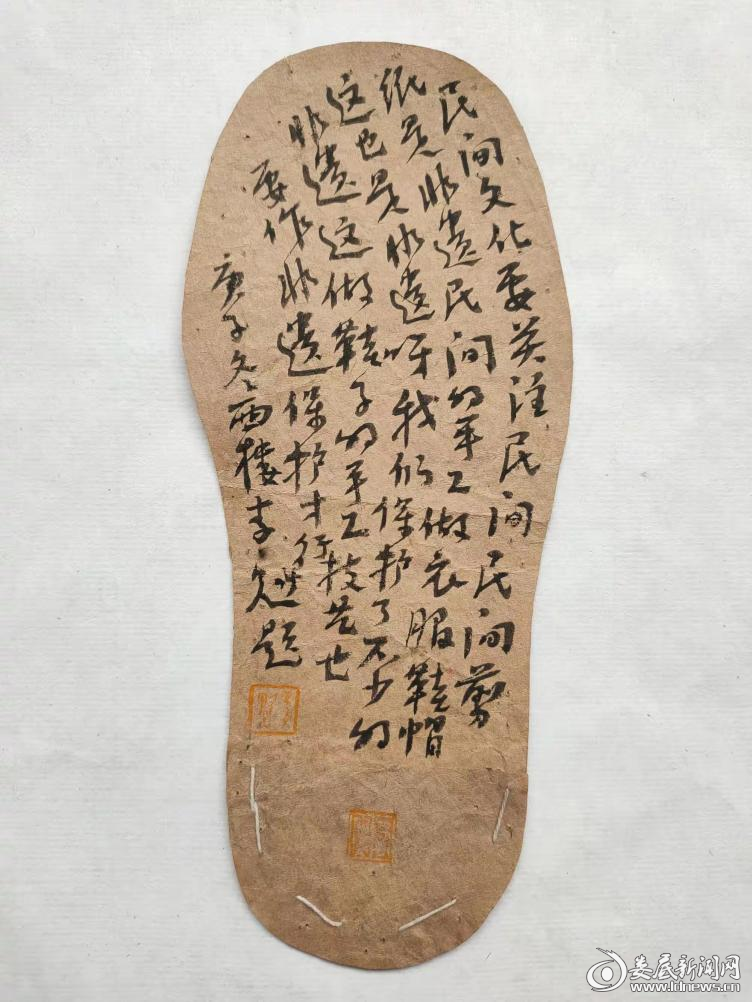 民间文化要关注民间民间剪
纸是非遗民间的手工做衣服鞋帽
这也是非遗呀我们保护了不少的
非遗这做鞋子的手工技艺也
要作非遗保护才行
庚子冬西楼李
题
娄底新闻网
www.ldnews.cn